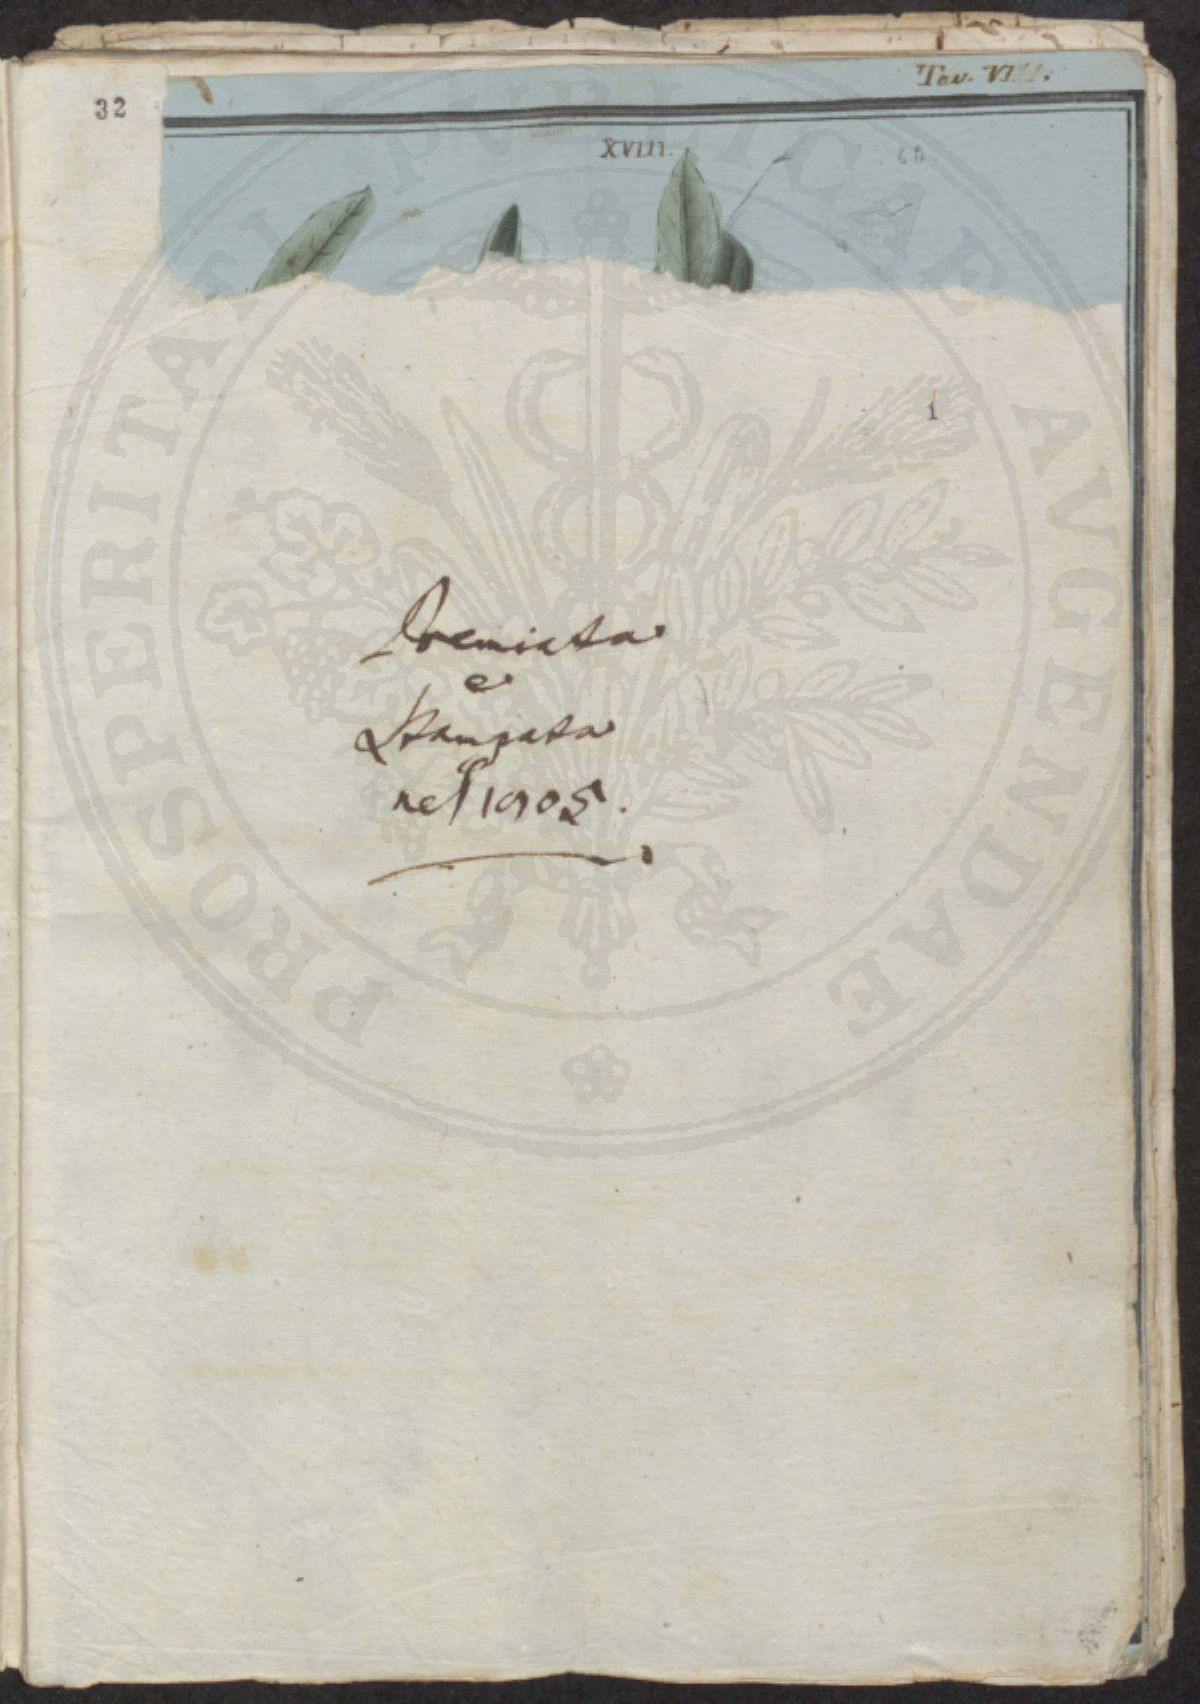 32
Tav. VIII.
XVIII.
1
Premiata
e
Stampata
nel
PROSPERITATI PUBLICAE AVGENDAE